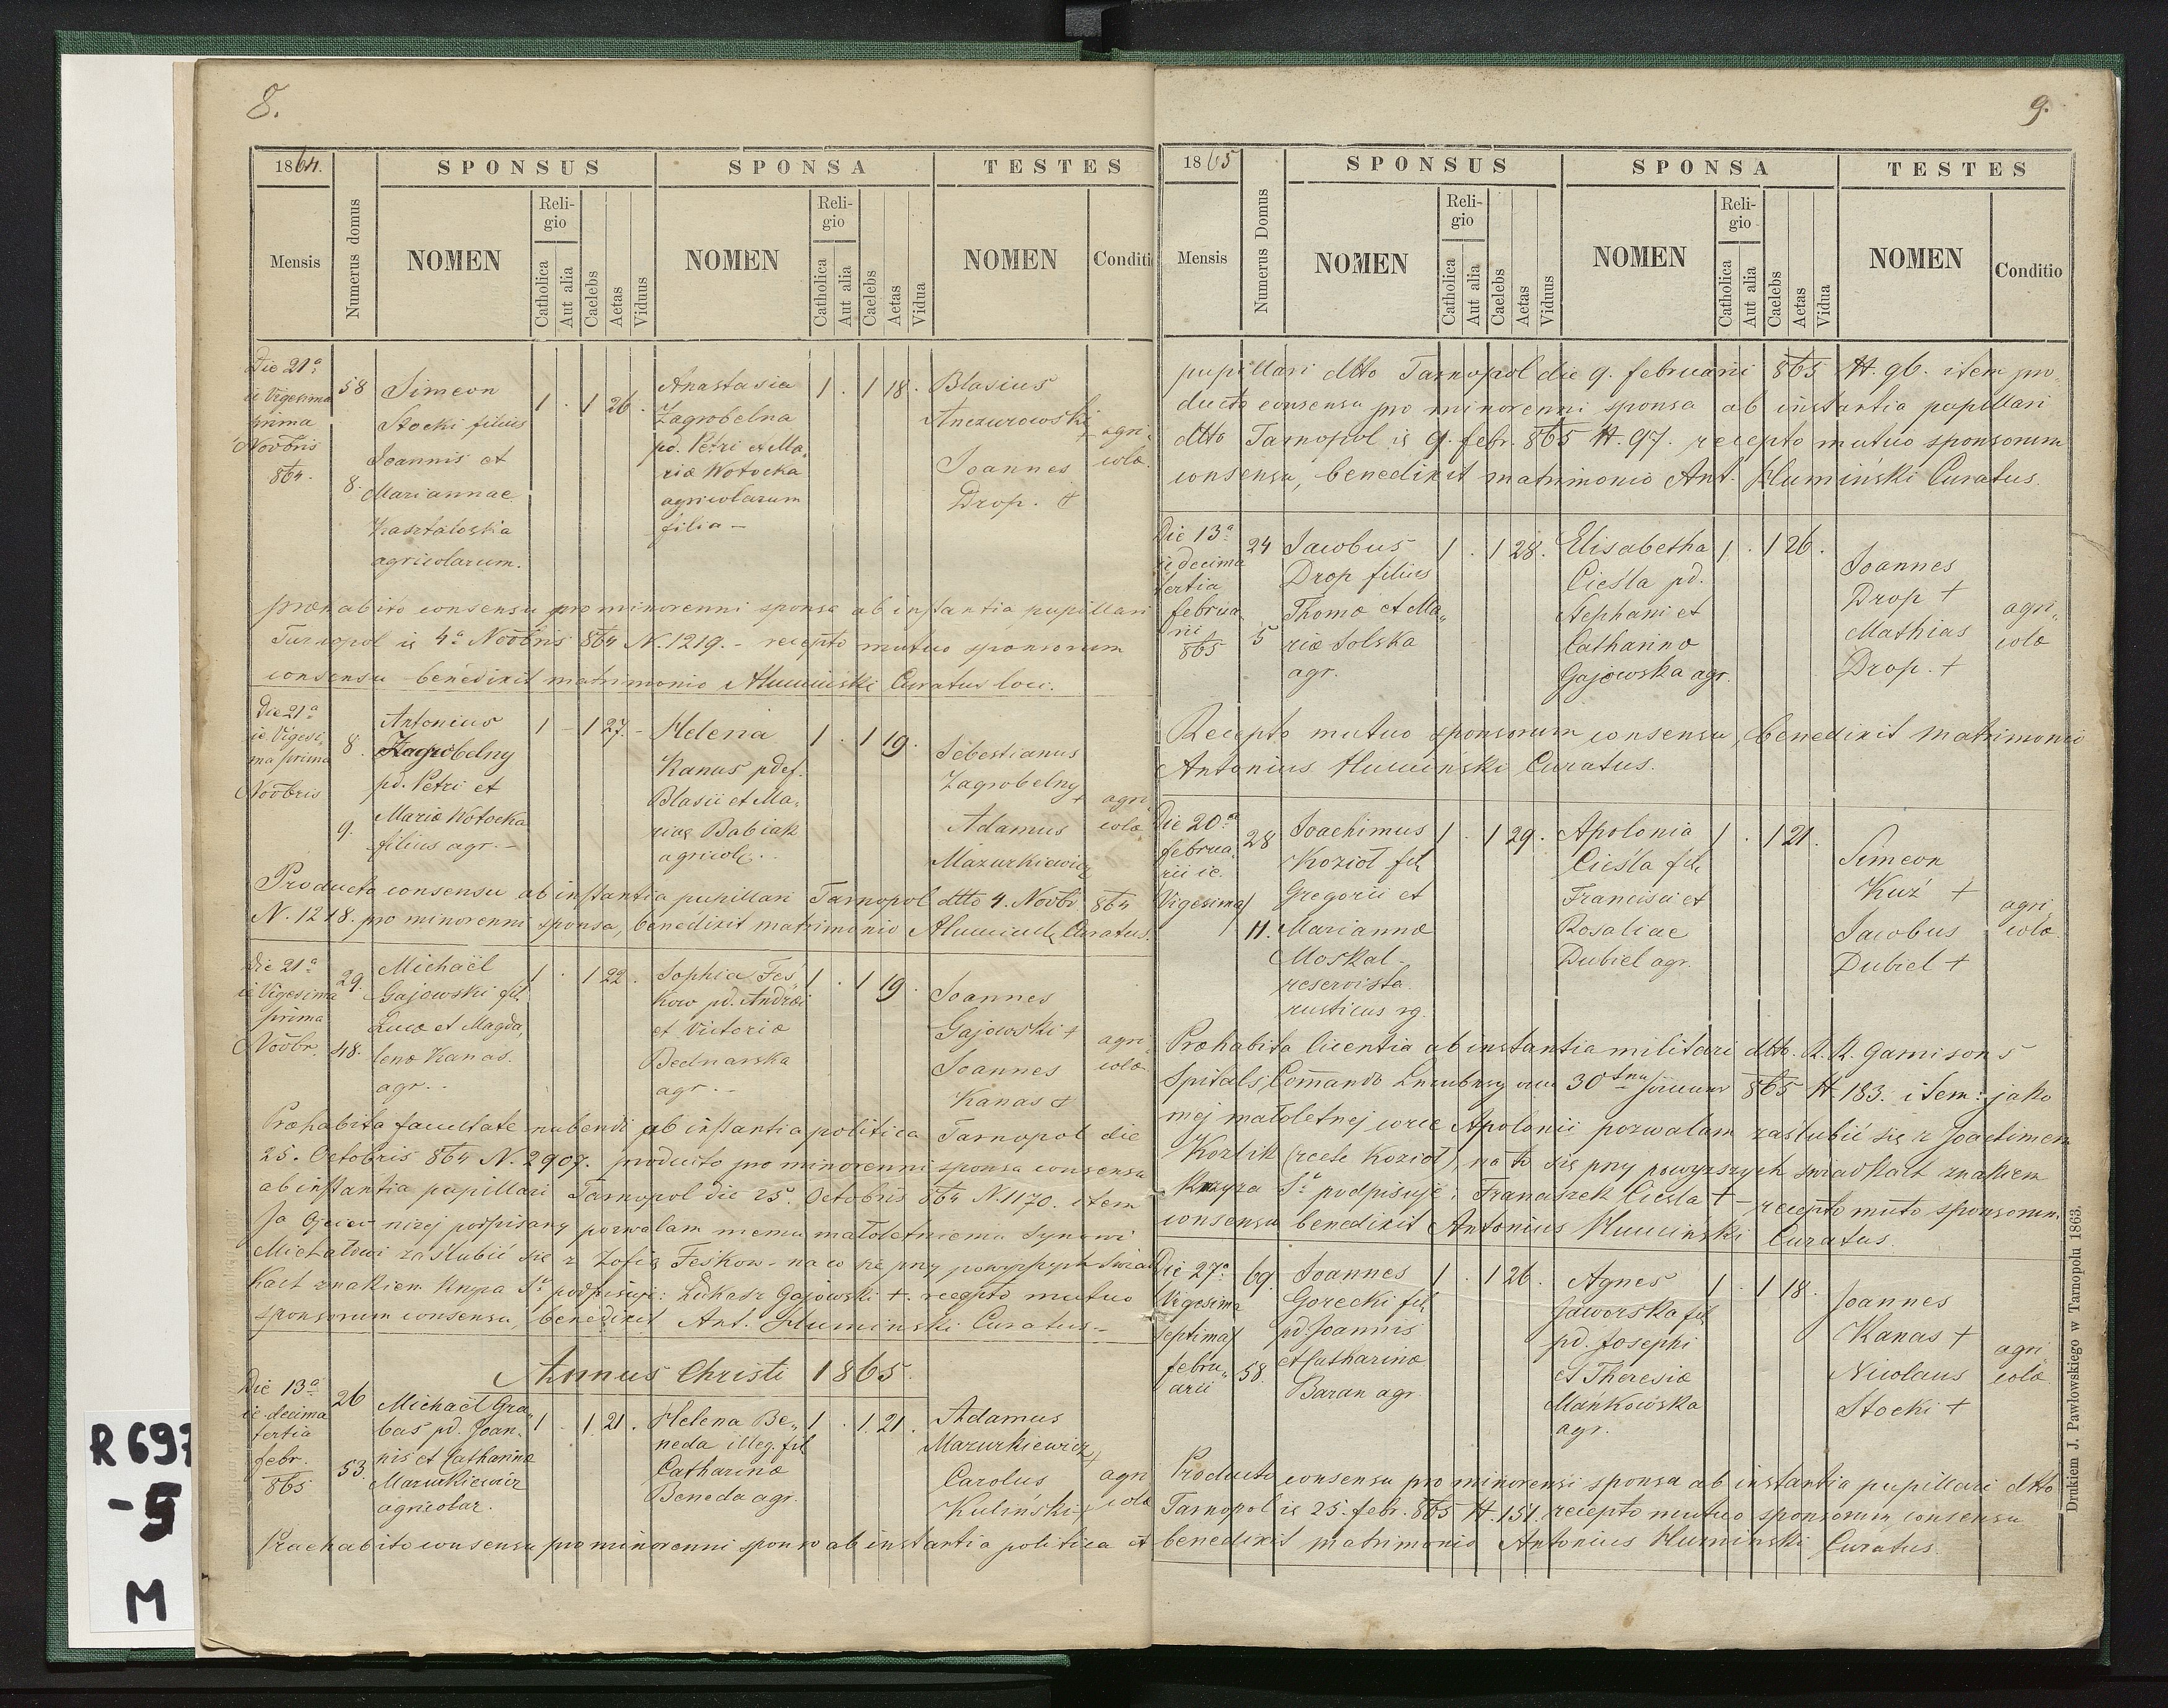 8.
1864.
SPONSUS SPONSA TESTES
Mensis
Numerus domus
NOMEN
Religio
Catholica
Aut alia
Caelebs
Aetas
Viduus
NOMEN
Religio
Catholica
Aut alia
Caelebs
Aetas
Vidua
NOMEN
Conditi
Die 21ª
ie Vigesima
prima
Novbris
864.
58
8.
Simeon
Stocki filius
Joannis et
Mariannae
Kasztaloska
agricolarum.
1 . 1 26.
Anastasia
Zagrobelna
pd. Petri et Ma,
riæ Wotocka
agricolarum
filia –
1 . 1 18.
Blasius
Anczurowski
+
Joannes
Drop. +
agri,
colæ.
præhabito consensu pro minorenni sponsa ab instantia pupillari
Tarnopol ie 4ª Novbris 864 N. 1219. – recepto mutuo sponsorum
consensu benedixit matrimonio Curatus loci.
Die 21ª
ie Vigesi,
ma prima
Novbris
8.
9.
Antonius
Zagrobelny
pd. Petri et
Mariæ Wotocka
filius agr. –
1 – 1 27. –
Helena
Kanas pdef.
Blasii et Ma,
riae Babiak
agricol.
1 . 1 19.
Sebestianus
Zagrobelny
+
Adamus
Mazurkiewicz
agri,
colæ.
Producto consensu ab instantia pupillari Tarnopol dtto 4. Novb 864
N. 1218. pro minorenni sponsa, benedixit matrimonio Curatus.
Die 21ª
ie Vigesima
prima
Novbr.
29.
48.
Michaël
Gajowski fil.
Lucæ et Magda,
lenæ Kanas.
agr. –
1 . 1 22.
Sophia Feś
Kow pd. Andræi
et Victoriæ
Bednarska
agr. –
1 . 1 19.
Joannes
Gajowski +
Joannes
Kanas +
agri
colæ
Præhabita facultate nubendi ab instantia politica Tarnopol die
25. Octobris 864 N. 2907. producto pro minorenni sponsa consensu
ab instantia pupillari Tarnopol die 25. Octobris 864 N. 1170. item
Ja Ojciec niżej podpisany pozwalam memu małoletniemu Synowi
Michałowi zaślubić się z Zofią Feśkow – na co się przy powyższych świad
kach znakiem krzyża Sº podpisuję: Łukasz Gajowski +. recepto mutuo
sponsorum consensu, benedixit Ant. Huminski Curatus –
Annus Christi 1865.
Die 13ª
ie decima
tertia
febr.
865
26
53.
Michaël Gra,
bas pd. Joan,
nis et Catharinæ
Mazurkiewicz
agricolar.
1 . 1. 21.
Helena Be,
neda illeg. fil
Catharinæ
Beneda agr.
1 . 1. 21.
Adamus
Mazurkiewicz
+
Carolus
Kuliński +
agri
colæ
Praehabito consensu pro minorenni sponso ab instantia politica et
9.
1865
SPONSUS SPONSA TESTES
Mensis
Numerus Domus
NOMEN
Religio
Catholica
Aut alia
Caelebs
Aetas
Viduus
NOMEN
Religio
Catholica
Aut alia
Caelebs
Aetas
Vidua
NOMEN
Conditio
pupillari dtto Tarnopol die 9. februarii 865 N. 96. item pro,
ducto consensu pro minorenni sponsa ab instantia pupillari
dtto Tarnopol ie 9. febr. 865 N. 97. recepto mutuo sponsorum
consensu, benedixit matrimonio Ant. Humiński Curatus.
Die 13ª
ie decima
tertia
februa,
rii
865
24
5
Jacobus
Drop filius
Thomæ et Ma,
riæ Solska
agr.
1 . 1 28.
Elisabetha
Cieśla pd.
Stephani et
Catharinæ
Gajowska agr.
1 . 1 26.
Joannes
Drop +
Mathias
Drop. +
agri,
colæ
Recepto mutuo sponsorum consensu, benedixit matrimonio
Antonius Humiński Curatus.
Die 20ª
februa,
rii ie.
Vigesima
28
11.
Joachimus
Kozioł fil,
Gregorii et
Mariannæ
Moskal –
reservista
rusticus rg.
1 . 1 29.
Apolonia
Cieśla fil,
Francisci et
Rosaliae
Dubiel agr.
1 . 1 21.
Simeon
Kuź +
Jacobus
Dubiel +
agri,
colæ.
Præhabita licentia ab instantia militari dtto. K. K. Garnisons
Spitals Commando Lemberg am 30 Jänner 865 N. 183. item: jako
mej małoletnej córce Apolonii pozwalam zaslubić się z Joachimem
Kozlik (recte Kozioł), na to się przy powyrszych świadkach znakiem
krzyza Sº podpisuję: Franciszek Ciesla + – recepto muto sponsorum
consensu benedixit Antonius Humiński Curatus.
Die 27ª
Vigesima
septima
febru,
arii
69.
58.
Joannes
Gorecki fil,
pd. Joannis
et Catharinæ
Baran agr.
1 . 1 26.
Agnes
Jaworska fil,
pd. Josephi
et Theresiæ
Mańkowska
agr.
1 . 1 18.
Joannes
Kanas +
Nicolaus
Stocki +
agri
colæ.
Producto consensu pro minorensi sponsa ab instantia pupillari dtto
Tarnopol ie 25. febr. 865 N. 151. recepto mutuo sponsorum consensu
benedixit matrimonio Antonius Huminski Curatus.
Drukiem J. Pawłowskiego w Tarnopolu 1863.
R 697
-5
M